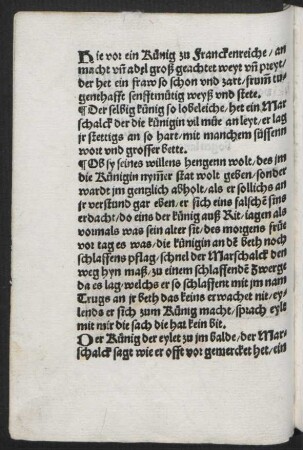 Hie vor ein Künig zu Franckenreiche / an
macht vñ adel groß geachtet weyt vñ preyt /
der het ein fraw so schon vnd zart / frum̃ tu
genthafft senfftmütig weyß vnd stete.
¶ Der selbig künig so lobeleiche / het ein Mar
schalck der die künigin vil müe an leyt / er lag
jr stettigs an so hart / mit manchem süssenn
wort vnd grosser bette.
¶ Ob sy seines willens hengenn wolt / des im
die Künigin nym̃er stat wolt geben / sonder
wardt im gentzlich abholt / als er sollichs an
jr verstund gar eben / er sich eins falschẽ sins
erdacht / do eins der künig auß Rit / iagen als
vormals was sein alter sit / des morgens frü̈e
vor tag es was / die künigin an dẽ beth noch
schlaffens pflag / schnel der Marschalck den
weg hyn maß / zu einem schlaffendẽ Zwerge
da es lag / welchs er so schlaffent mit jm nam
Trugs an jr beth das keins erwachet nie / ey-
lends er sich zum Künig macht / sprach eylt
mit mir die sach die hat kein bit.
Der Künig der eylet zu jm balde / der Mar-
schalck sagt wie er offt vor gemercket het / ein